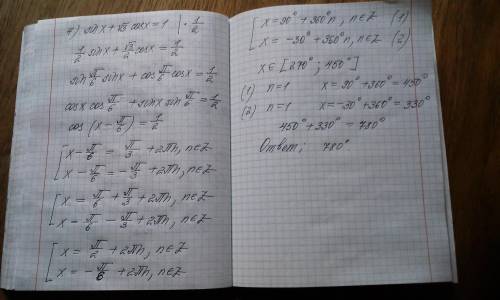 7) sin x + √3 cos x = 1 | · 1/2
1/2 sin x + √3/2 cos x = 1/2
sin π/6 sin x + cos π/6 cos x = 1/2
cos x cos π/6 + sin x sin π/6 = 1/2
cos (x - π/6) = 1/2
[ x - π/6 = π/3 + 2πn, n∈Z
x - π/6 = -π/3 + 2πn, n∈Z
[ x = π/6 + π/3 + 2πn, n∈Z
x = π/6 - π/3 + 2πn, n∈Z
[ x = π/2 + 2πn, n∈Z
x = -π/6 + 2πn, n∈Z
[ x = 90° + 360°n, n∈Z (1)
x = -30° + 360°n, n∈Z (2)
x∈[270°; 450°]
(1) n=1 x = 90° + 360° = 450°
(2) n=1 x = -30° + 360° = 330°
450° + 330° = 780°
Ответ: 780°